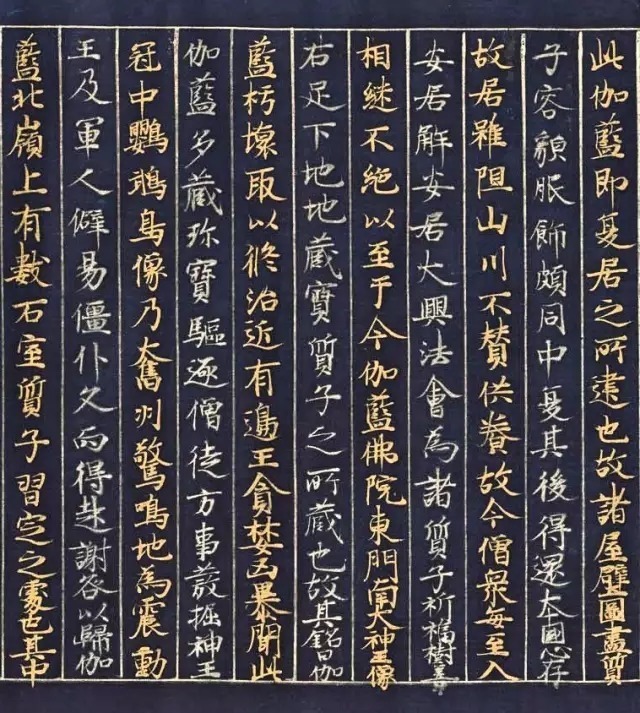 此伽藍即夏居之所建也故諸屋壁圖畫質
子容貌服飾頗同中夏其後得還本國心存
故居雖阻山川不贊供養故今僧衆每至入
安居解安居大興法會為諸質子祈福樹善
相継不絕以至于今伽藍佛院東門南大神王像
右足下地地藏寶質子之所藏也故其銘曰伽
藍朽壞取以脩治近有邊王貪婪凶暴聞此
伽藍多藏珎寶驅逐僧徒方事發掘神王
冠中鸚鵡鳥像乃奮羽驚鳴地為震動
王及軍人僻易僵仆久而得起謝咎以歸伽
藍北嶺上有數石室質子習定之處也其中